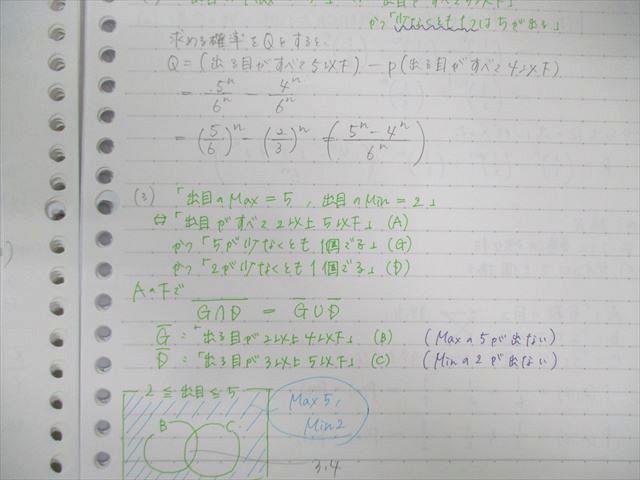 かつ「少なくとも1つは5が出る」
求める確率をQとすると、
Q = (出る目がすべて5以下) - P(出る目がすべて4以下)
= 5^n/6^n - 4^n/6^n
= (5/6)^n - (2/3)^n (= (5^n - 4^n)/6^n)
(3) 「出目のMax = 5 , 出目のMin = 2」
⇔「出目がすべて2以上5以下」(A)
かつ「5が少なくとも1個でる」(G)
かつ「2が少なくとも1個でる」(D)
Aの下で
G∩D̅ = G̅∪D̅
G̅ : 「出る目が2以上4以下」(B) (Maxの5が出ない)
D̅ : 「出る目が3以上5以下」(C) (Minの2が出ない)
2 ≦ 出目 ≦ 5
B C
Max 5,
Min 2
3,4